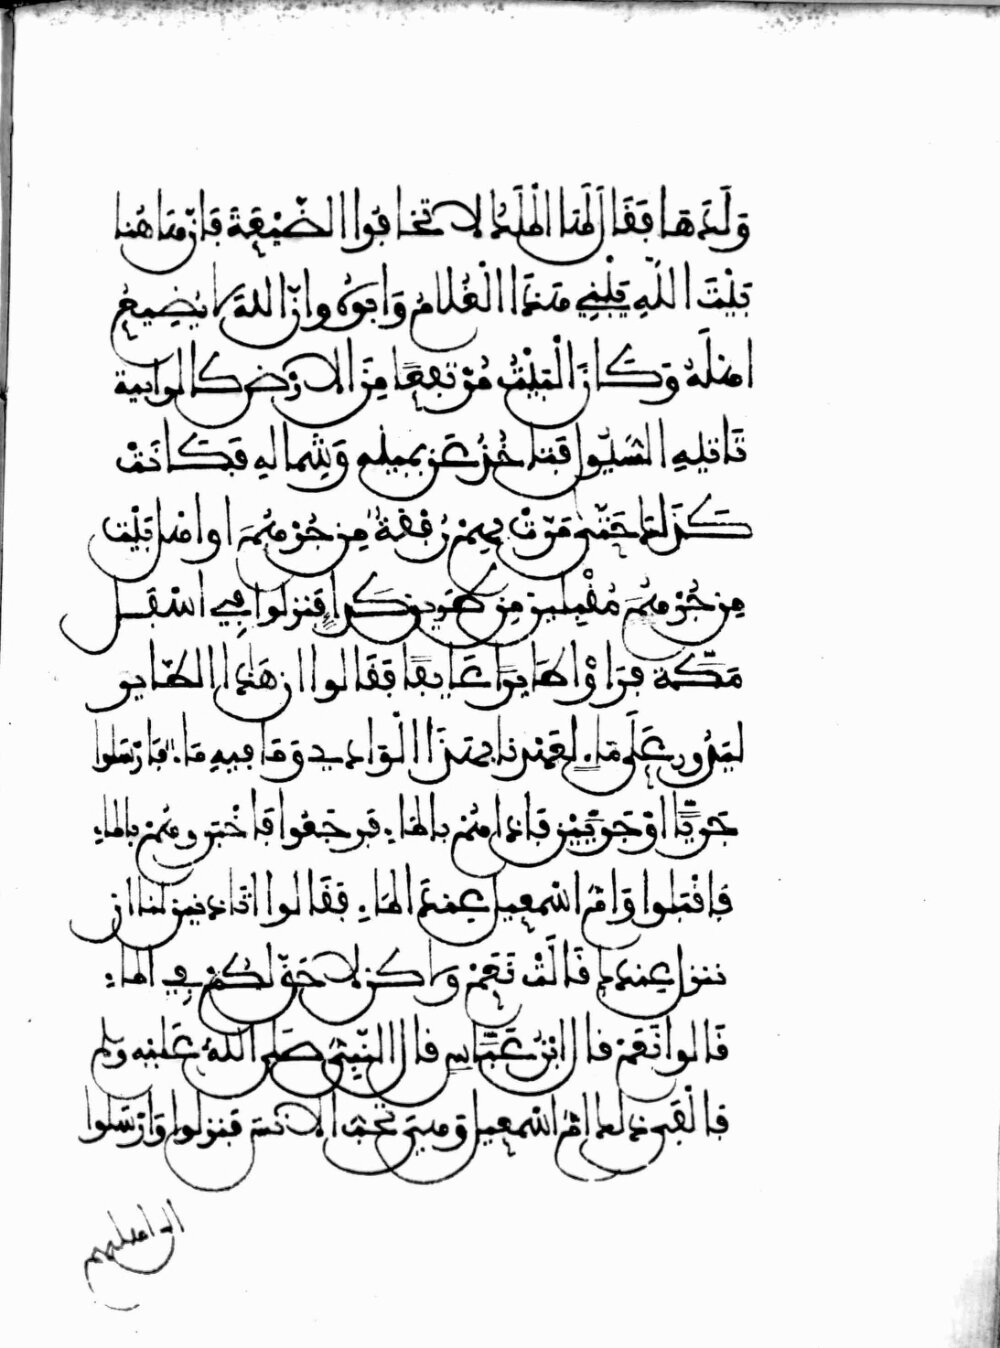 وَلَدَهَا فَقَالَ لَهَا الْمَلَكُ لَا تَخَافُوا الضَّيْعَةَ فَإِنَّ هَاهُنَا
بَيْتَ اللَّهِ يَبْنِي هَذَا الْغُلَامُ وَأَبُوهُ وَإِنَّ اللَّهَ لَا يُضِيعُ
أَهْلَهُ وَكَانَ الْبَيْتُ مُرْتَفِعًا مِنَ الْأَرْضِ كَالرَّابِيَةِ
تَأْتِيهِ السُّيُولُ فَتَأْخُذُ عَنْ يَمِينِهِ وَشِمَالِهِ فَكَانَتْ
كَذَلِكَ حَتَّى مَرَّتْ بِهِمْ رُفْقَةٌ مِنْ جُرْهُمَ أَوْ أَهْلُ بَيْتٍ
مِنْ جُرْهُمَ مُقْبِلِينَ مِنْ طَرِيقِ كَدَاءٍ فَنَزَلُوا فِي أَسْفَلِ
مَكَّةَ فَرَأَوْا طَائِرًا عَائِفًا فَقَالُوا إِنَّ هَذَا الطَّائِرَ
لَيَدُورُ عَلَى مَاءٍ لَعَهْدُنَا بِهَذَا الْوَادِي وَمَا فِيهِ مَاءٌ فَأَرْسَلُوا
جَرِيًّا أَوْ جَرِيَّيْنِ فَإِذَا هُمْ بِالْمَاءِ فَرَجَعُوا فَأَخْبَرُوهُمْ بِالْمَاءِ
فَأَقْبَلُوا وَأُمُّ إِسْمَعِيلَ عِنْدَ الْمَاءِ فَقَالُوا أَتَأْذَنِينَ لَنَا أَنْ
نَنْزِلَ عِنْدَكِ قَالَتْ نَعَمْ وَلَكِنْ لَا حَقَّ لَكُمْ فِي الْمَاءِ
قَالُوا نَعَمْ قَالَ ابْنُ عَبَّاسٍ قَالَ النَّبِيُّ صَلَّى اللَّهُ عَلَيْهِ وَسَلَّمَ
فَأَلْفَى ذَلِكَ أُمَّ إِسْمَعِيلَ وَهِيَ تُحِبُّ الْأُنْسَ فَنَزَلُوا وَأَرْسَلُوا
الى اهليهم